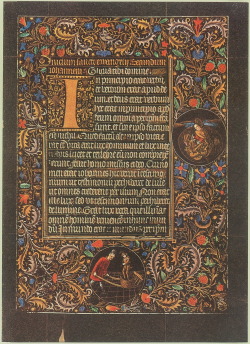 Inicium sancti euangelii secundum
Johannem Gloria tibi domine
In principio erat
verbum et verbum erat apud de
um et deus erat verbum
hoc erat in principio apud
deum omnia per ipsum
facta sunt et sine ipso factum
est nichil Quod factum est in ipso vita
erat et vita erat lux hominum et lux in te
nebris lucet et tenebre eam non comprehe
derunt fuit homo missus a deo Cui no
men erat iohannes hic venit in testimo
nium ut testimonium perhiberet de lumine
ut omnes crederent per illum Non erat
ille lux sed ut testimonium perhiberet
de lumine Erat lux vera que illumi
nat omnem hominem venientem in hunc mun
dum In mundo erat et mundus per ipsum